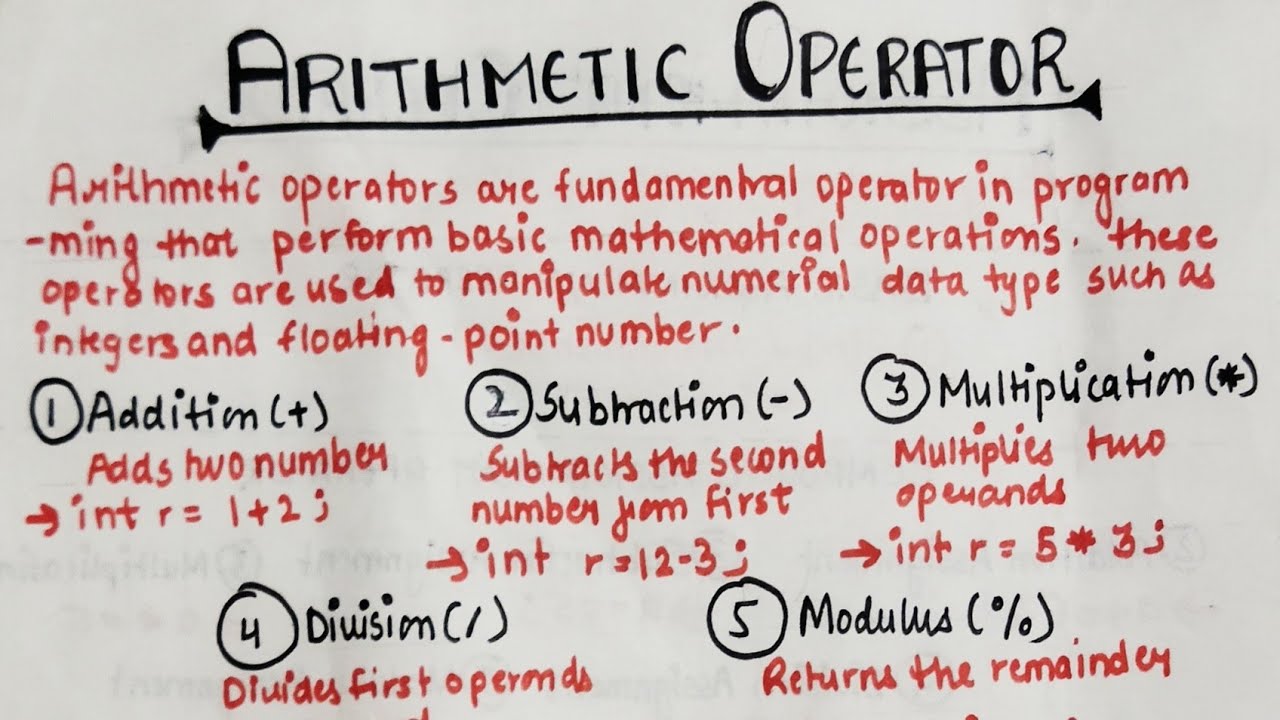 ARITHMETIC OPERATOR
Arithmetic operators are fundamentral operator in program
-ming that perform basic mathematical operations. these
operators are used to manipulate numerial data type such as
integers and floating - point number.
① Addition (+)
Adds two number
→ int r = 1+2;
② Subtraction (-)
Subtracts the second
number from first
→ int r = 12-3;
③ Multiplication (*)
Multiplies two
operands
→ int r = 5 * 3;
④ Division (/)
Divides first operands
⑤ Modulus (%)
Returns the remainder